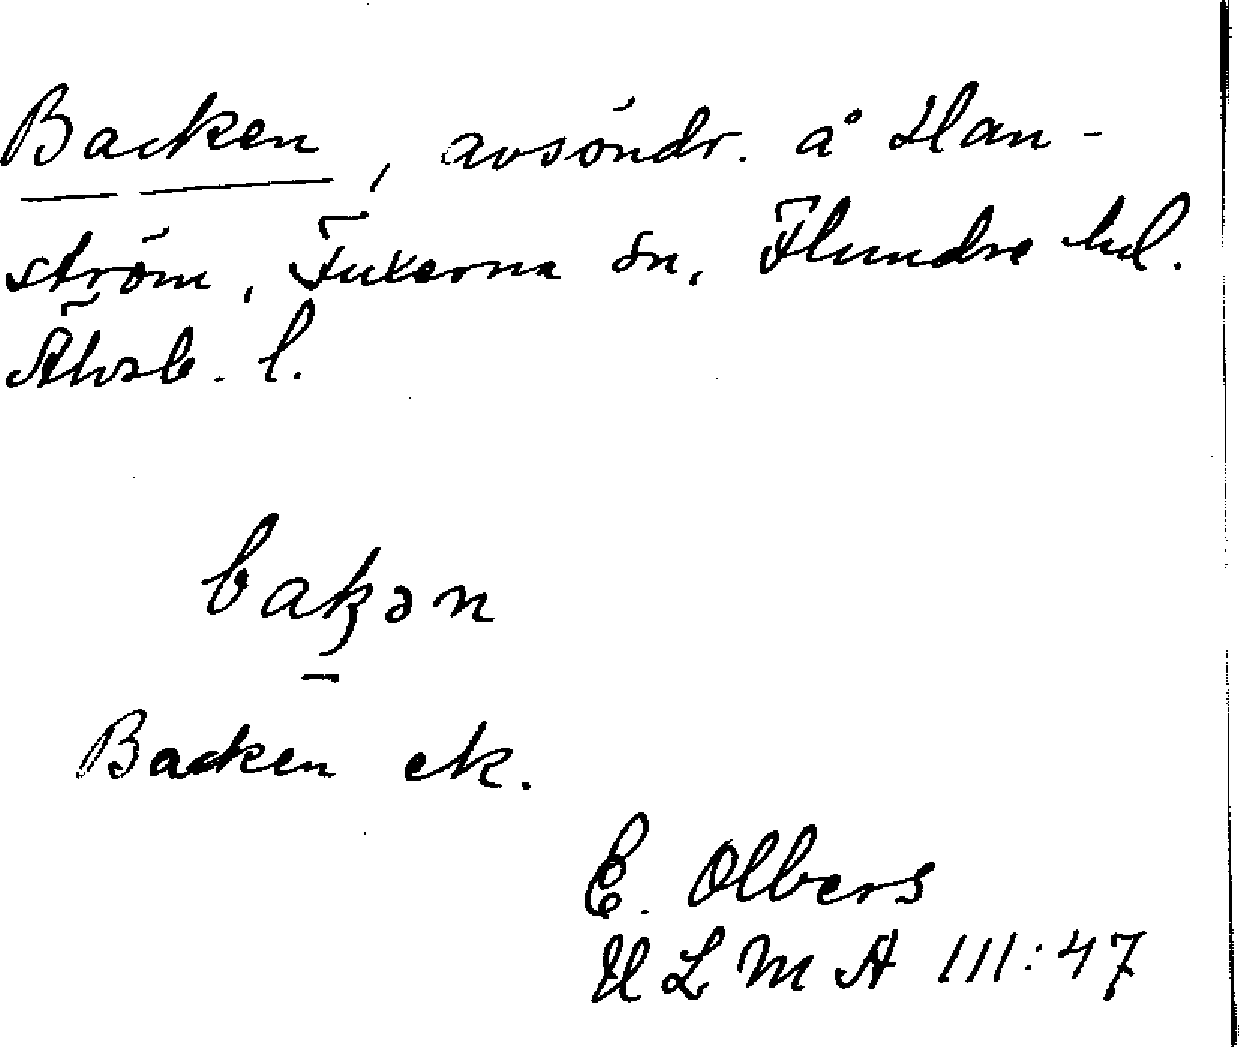 Backen, avsöndr. å Han-
ström, Fuxerna sn, Flundre hd.
Älvsb. l.
bakən
Backen ek.
E. Olbers
ULMA 111:47